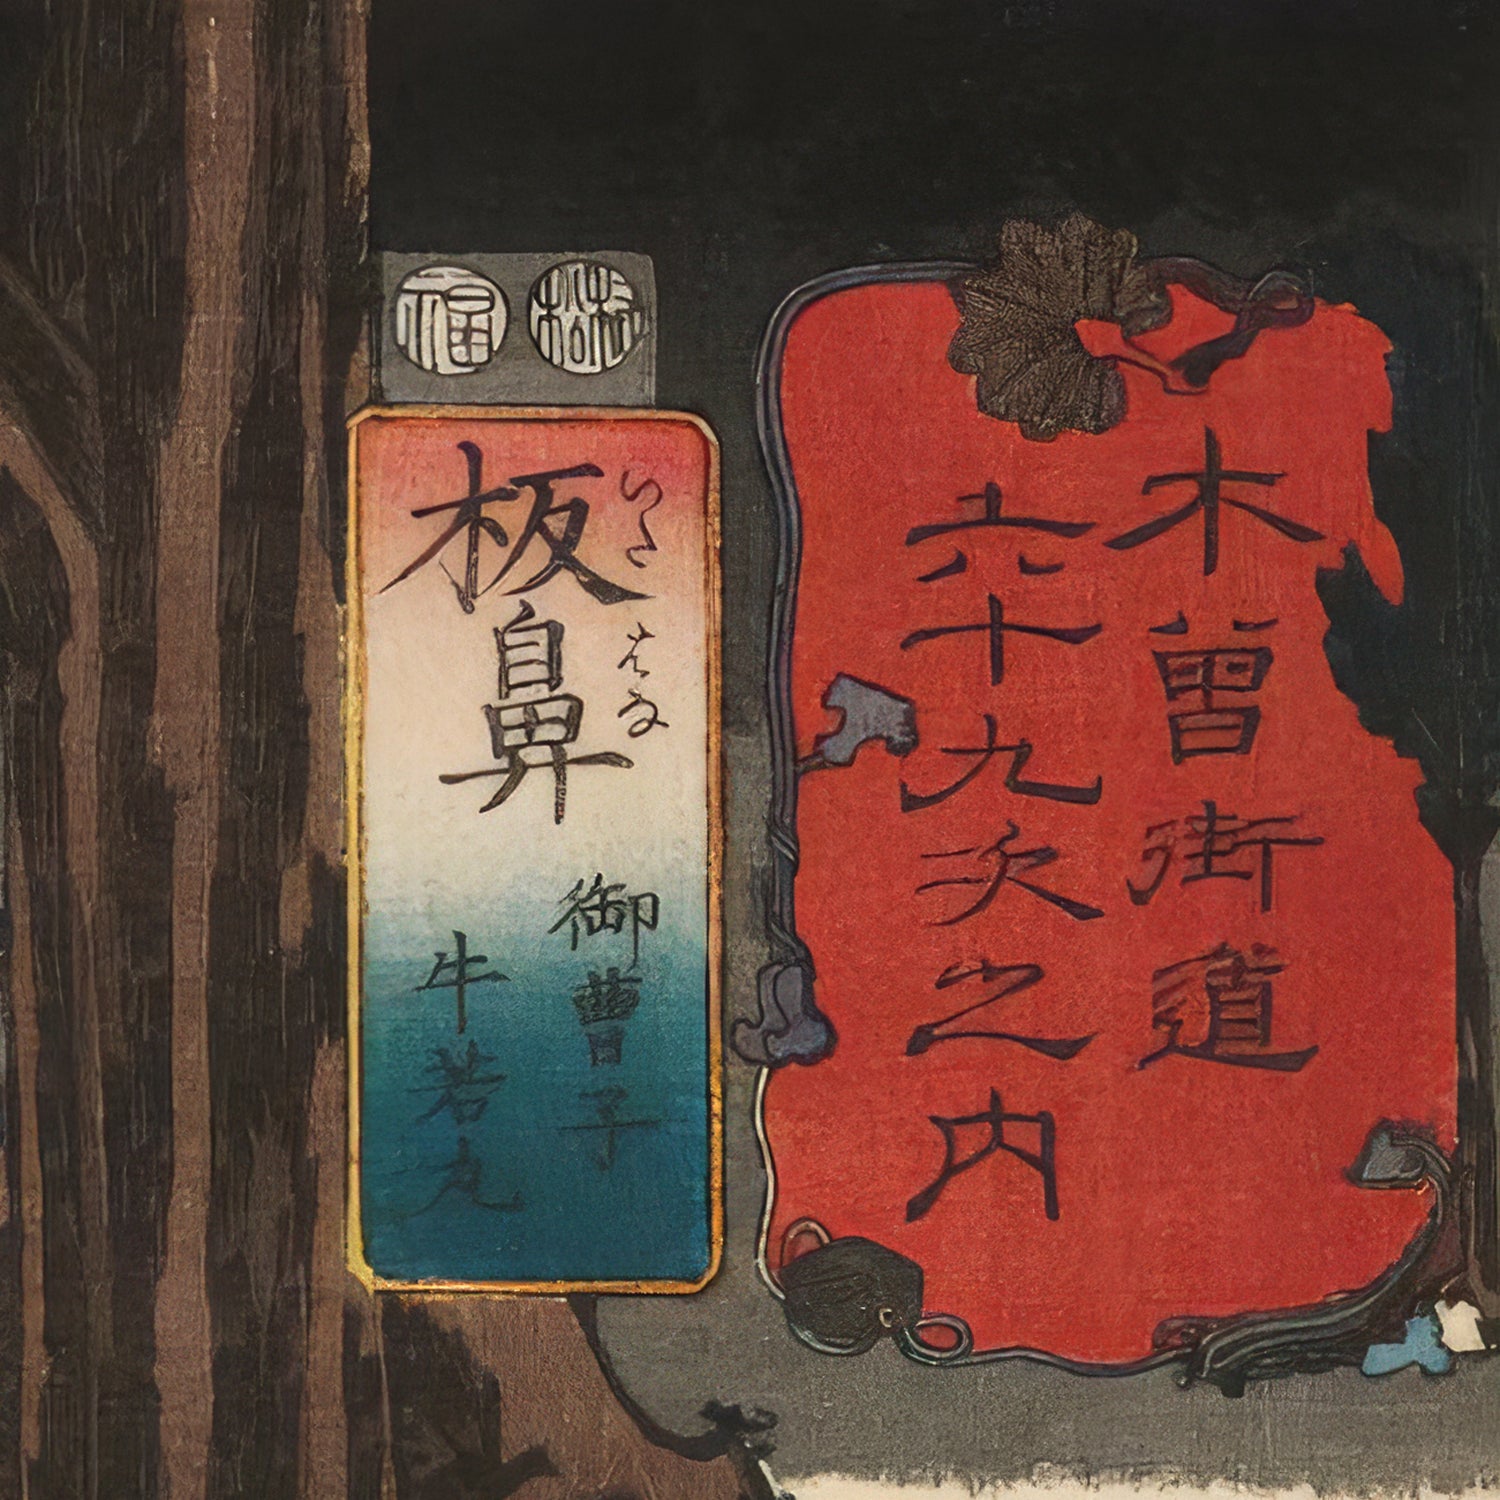 木曽街道
六十九次之内
板鼻
いたはな
御曹子
牛若丸
福
村松